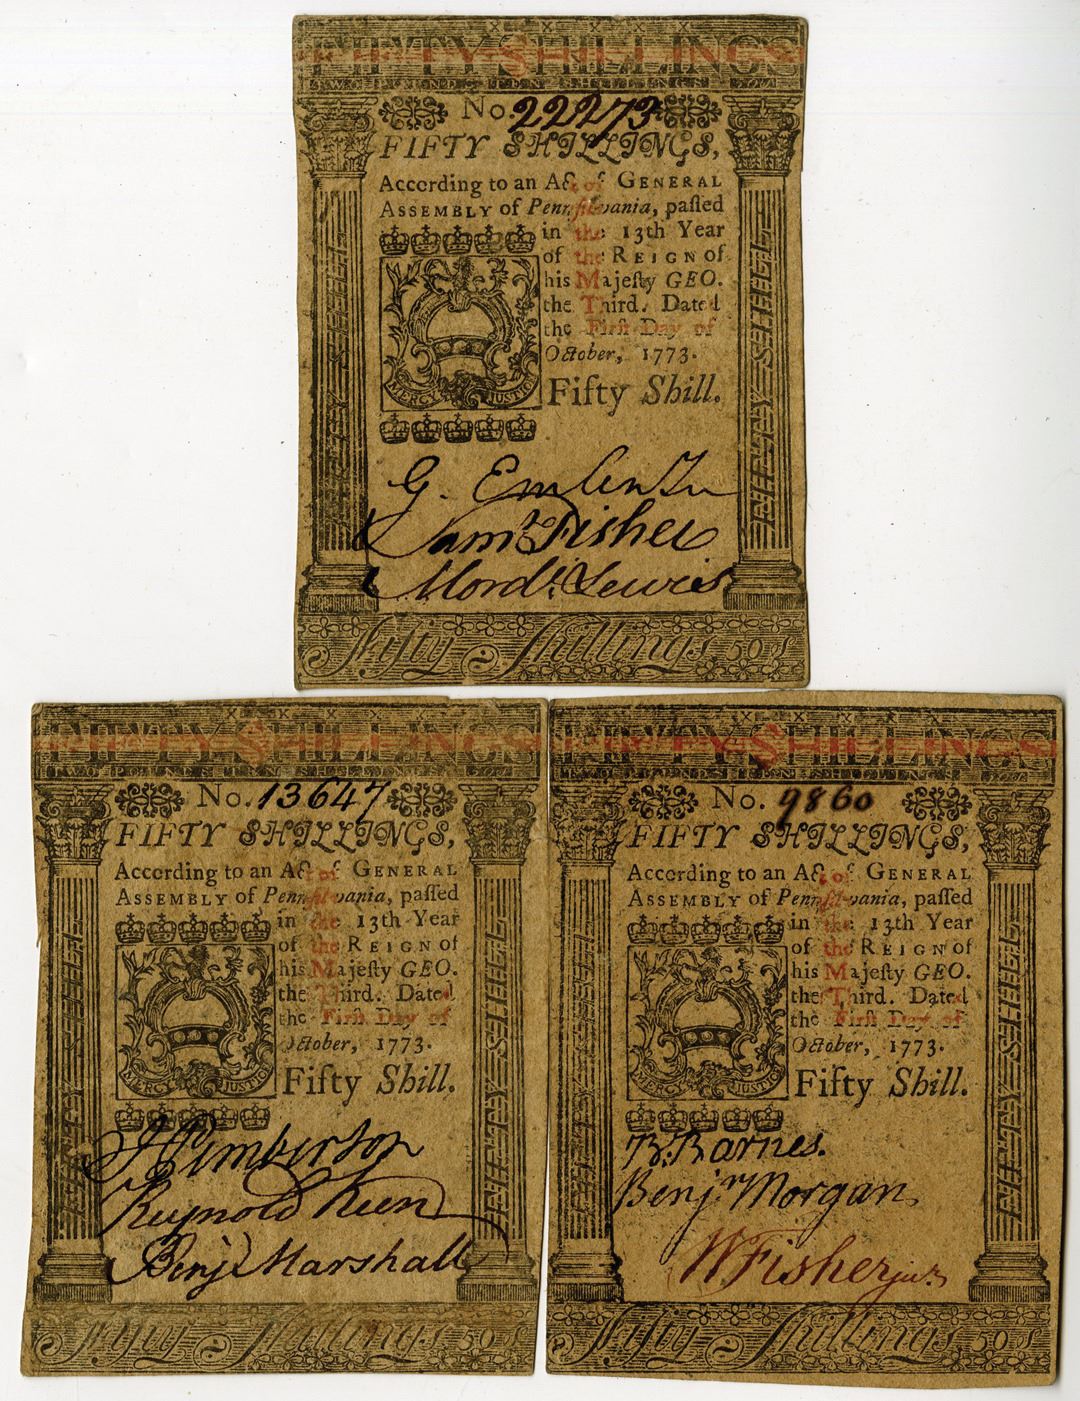 FIFTY SHILLINGS
TWO POUNDS TEN SHILLINGS.
No. 22273
FIFTY SHILLINGS,
According to an Act of GENERAL
ASSEMBLY of Pennſilvania, paſſed
in the 13th Year
of the REIGN of
his Majeſty GEO.
the Third. Dated
the Firſt Day of
October, 1773.
Fifty Shill.
MERCY JUSTICE
FIFTY SHILL
G. Emlen Jr
Samˡ Fisher
Mordᵗ Lewis
Fifty Shillings, 50 s
FIFTY SHILLINGS
TWO POUNDS TEN SHILLINGS
No. 13647
FIFTY SHILLINGS,
According to an Act of GENERAL
ASSEMBLY of Pennſilvania, paſſed
in the 13th Year
of the REIGN of
his Majeſty GEO.
the Third. Dated
the Firſt Day of
October, 1773.
Fifty Shill.
MERCY JUSTICE
J Pemberton
Reynold Keen
Benj Marshall
Fifty Shillings, 50 s
FIFTY SHILLINGS
TWO POUNDS TEN SHILLINGS
No. 9860
FIFTY SHILLINGS,
According to an Act of GENERAL
ASSEMBLY of Pennſilvania, paſſed
in the 13th Year
of the REIGN of
his Majeſty GEO.
the Third. Dated
the Firſt Day of
October, 1773.
Fifty Shill.
MERCY JUSTICE
FIFTY SHILL
B. Barnes.
Benjⁿ Morgan
W Fisher junʳ
Fifty Shillings, 50 s